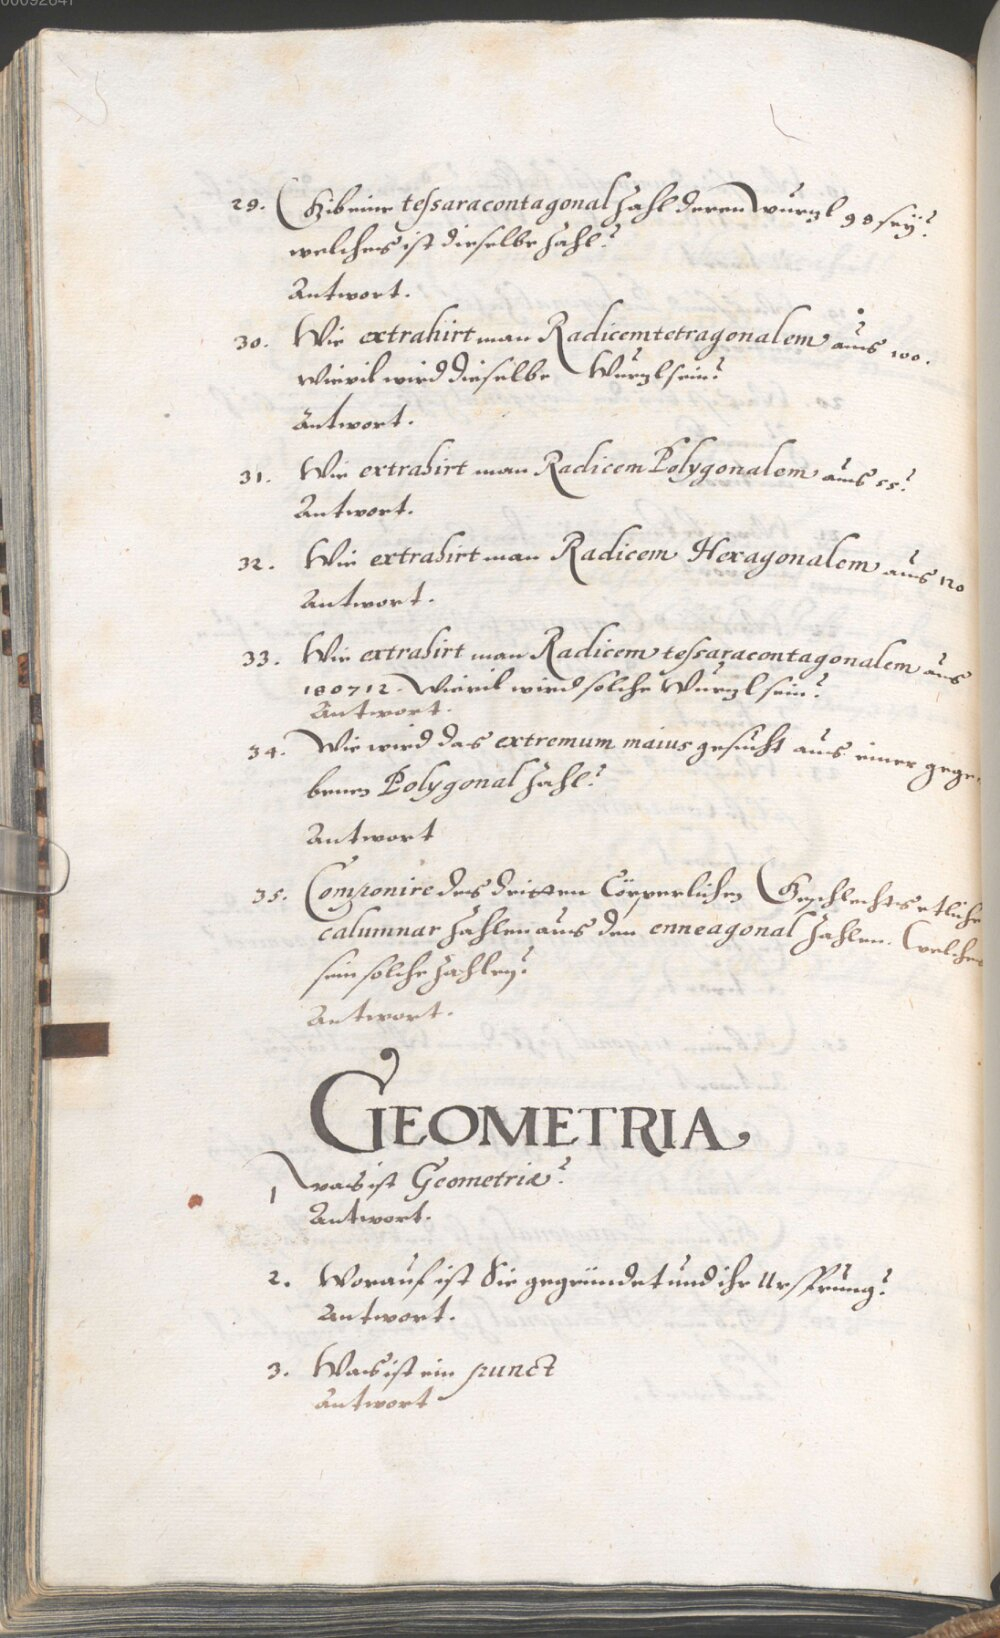 29. Gib eine tessaracontagonal Zahl deren Wurzl 98 seÿ?
welches ist dieselbe Zahl?
Antwort.
30. Wie extrahirt man Radicem tetragonalem aus 100.
wievil wird dieselbe Wurzl sein?
Antwort.
31. Wie extrahirt man Radicem Polygonalem aus 55?
Antwort.
32. Wie extrahirt man Radicem Hexagonalem aus 120
Antwort.
33. Wie extrahirt man Radicem tessaracontagonalem aus
180712. Wievil wird solche Wurzl sein?
Antwort.
34. Wie wird das extremum maius gesucht aus einer gege-
benen Polygonal Zahl?
Antwort
35. Componire des dritten Cörperlichen Geschlechts etliche
calumnar Zahlen aus den enneagonal Zahlen. Welches
sein solche Zahlen?
Antwort.
GEOMETRIA
1 was ist Geometria?
Antwort.
2. Worauf ist Sie gegründet und ihr Ursprung?
Antwort.
3. Was ist ein punct
Antwort